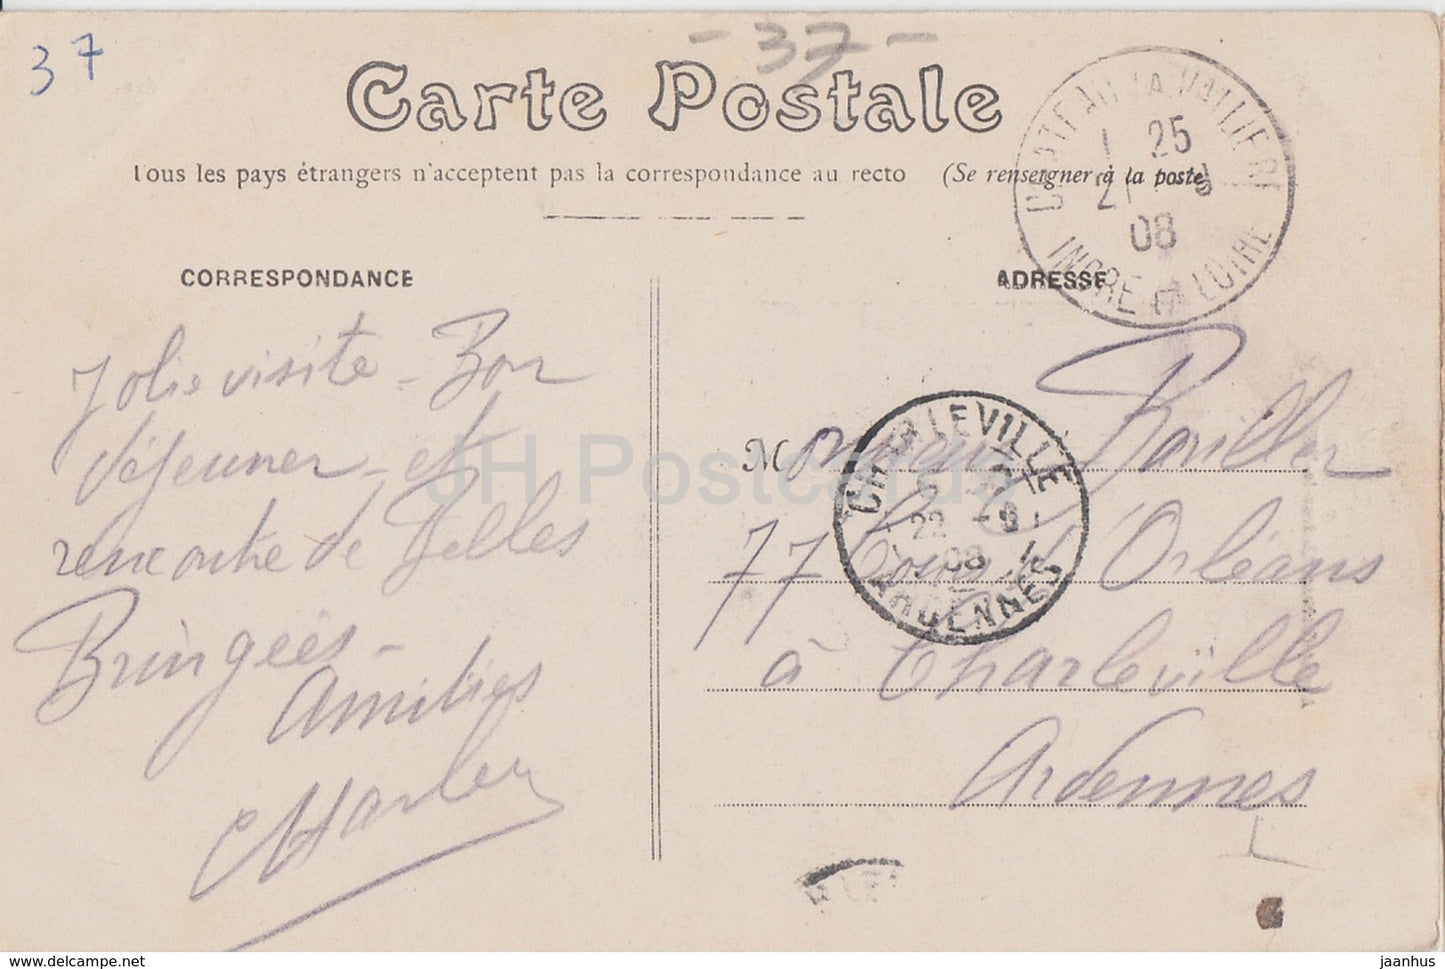 37
- 37 -
Carte Postale
Tous les pays étrangers n'acceptent pas la correspondance au recto (Se renseigner à la poste)
CHATEAU LA VALLIERE
1 25
21 - 9
08
INDRE ET LOIRE
CORRESPONDANCE
ADRESSE
Jolie visite - Bon
déjeuner - et
rencontre de Belles
Amitiés
Charles
Monsieur
77 Cours d'Orléans
à Charleville
Ardennes
CHARLEVILLE
22 - 9
08
ARDENNES
JH Postcards
jaanhus.com